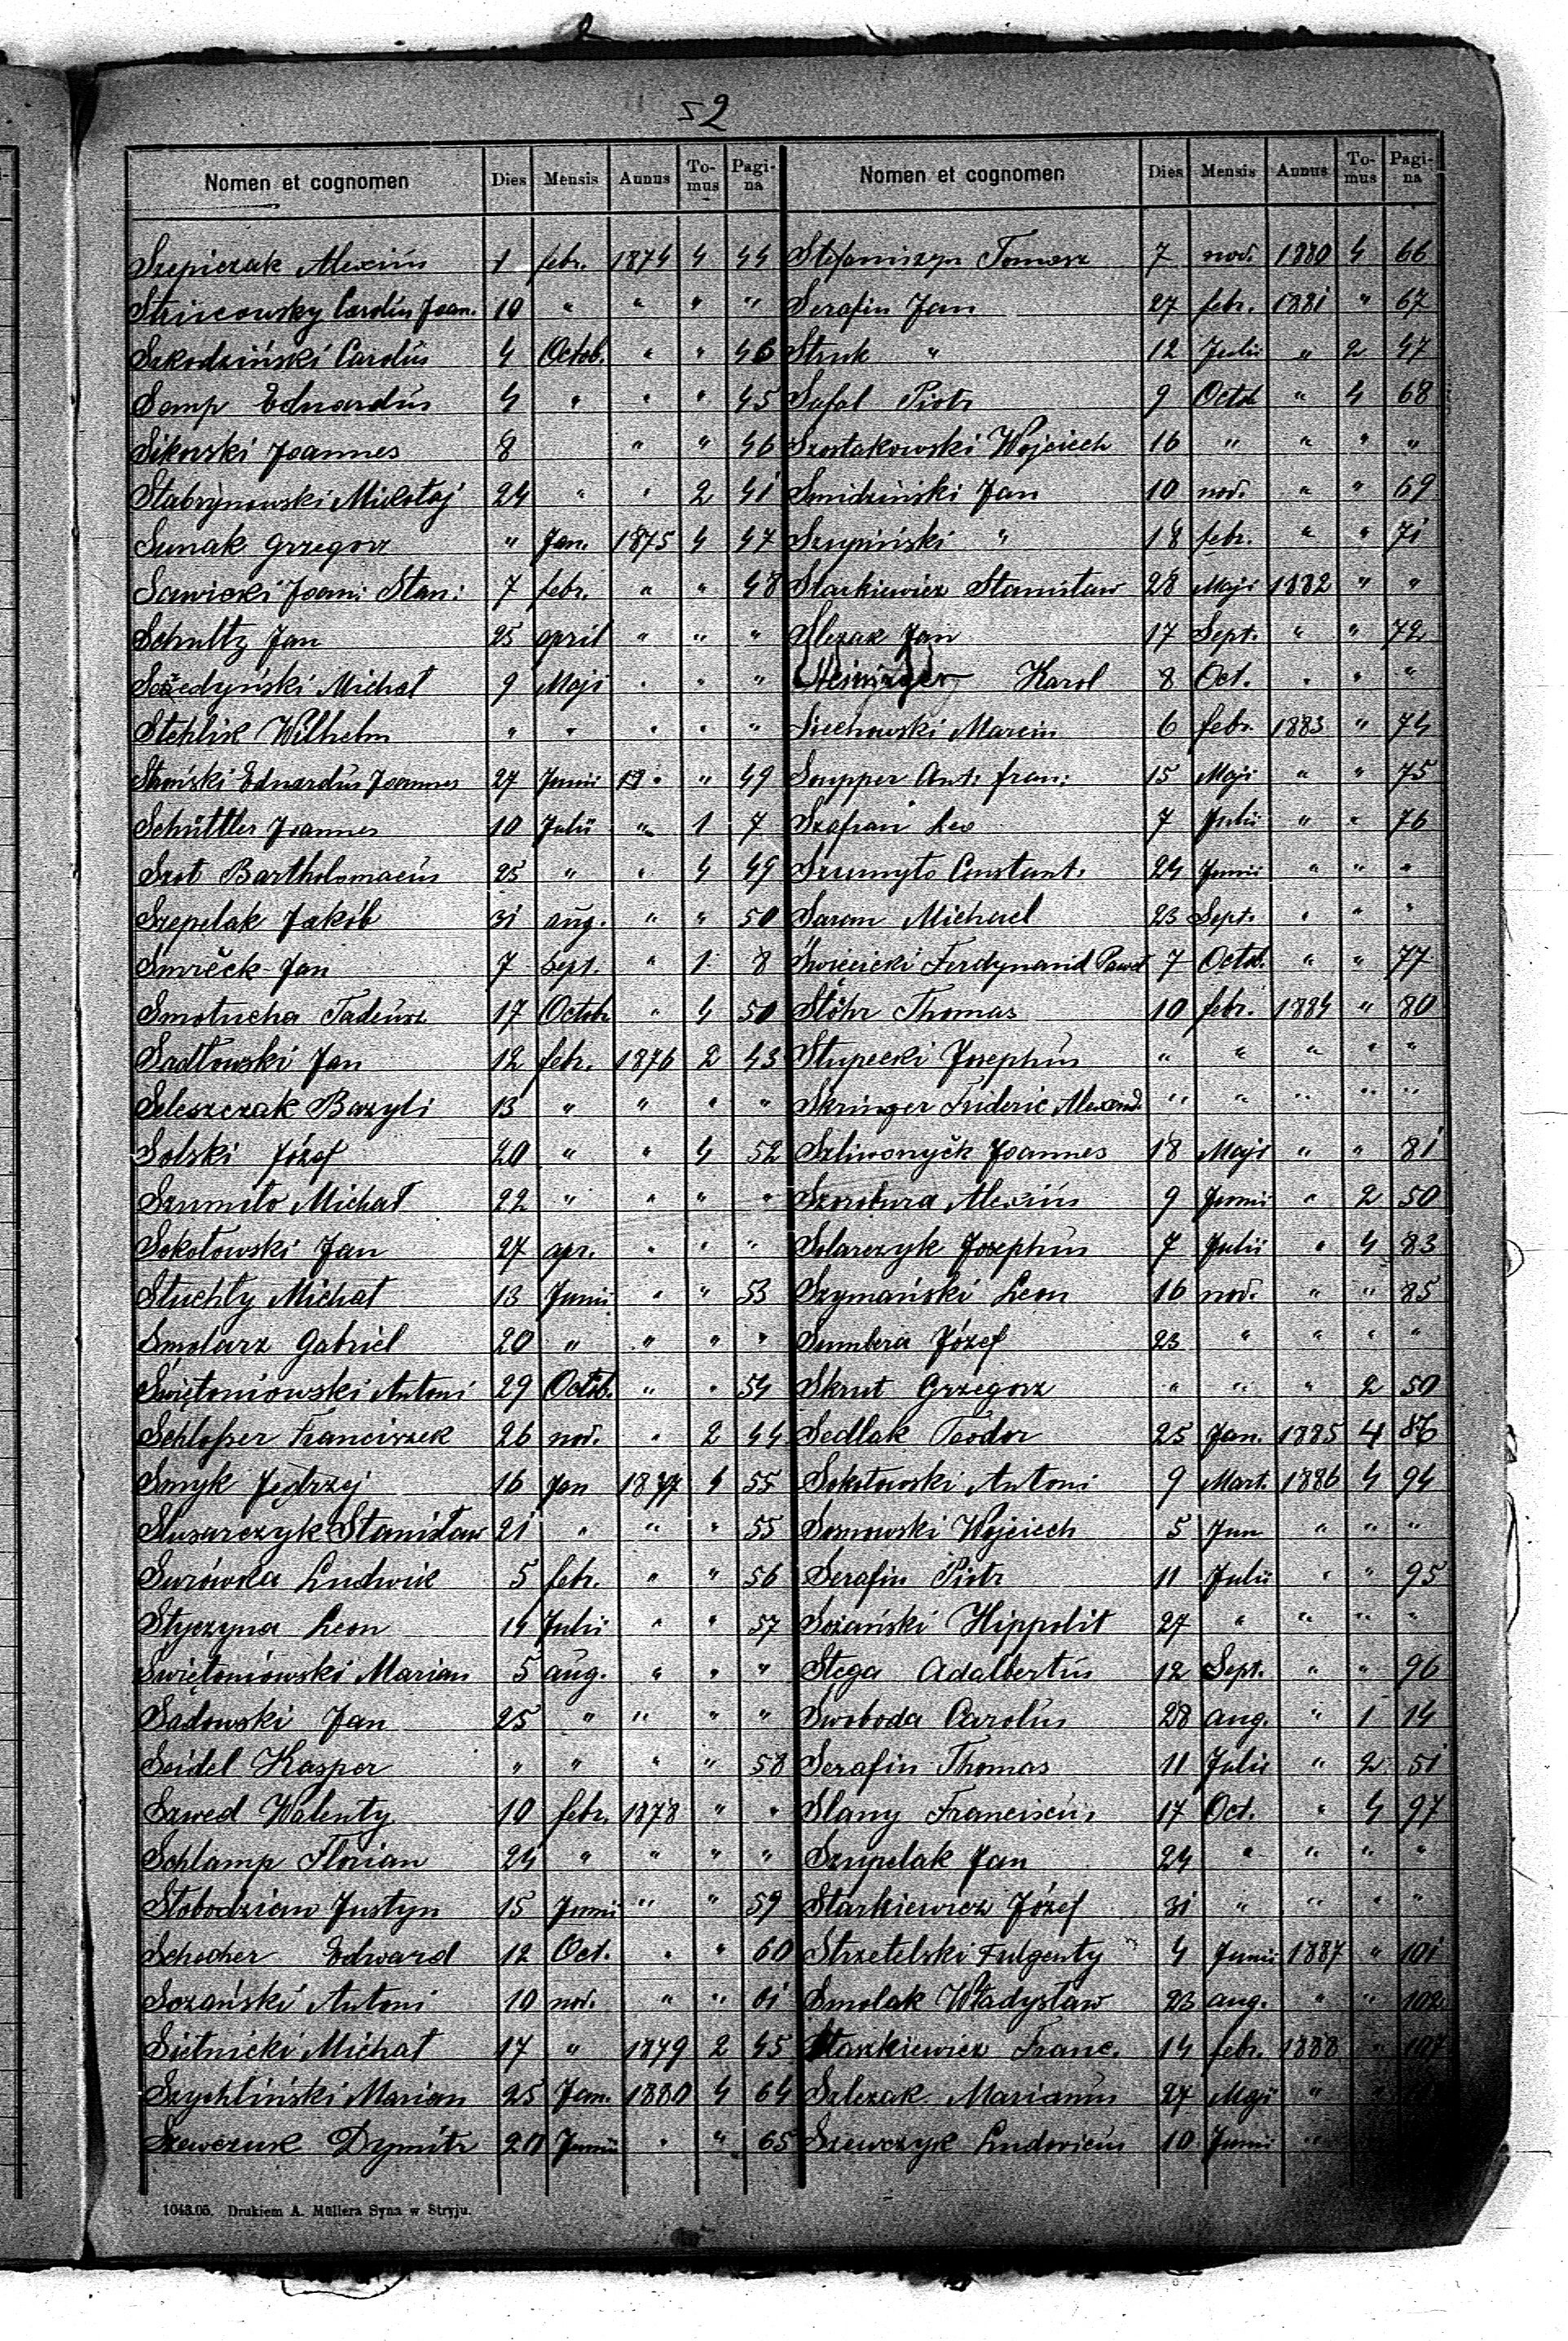 52
Nomen et cognomen Dies Mensis Annus To-mus Pagi-na
Szepiczak Alexius 1 febr. 1874 4 44
Strucowsky Carolus Joan. 10 " " " "
Szkodziński Carolus 4 Octob. " " 46
Semp Eduardus 4 " " " 45
Sikorski Joannes 8 " " 46
Stabrynowski Mikołaj 24 " " 2 41
Sunak Grzegorz " Jan. 1875 4 47
Sawicki Joan: Stan: 7 febr. " " 48
Schultz Jan 25 april " " "
Michał 9 Maji " " "
Stehlik Wilhelm " " " " "
Słoński Eduardus Joannes 27 Junii " " 49
Schüttler Joannes 10 Julii " 1 7
Szot Bartholomaeus 25 " " 4 49
Szepelak Jakób 31 aug. " " 50
Smrěck Jan 7 Sept. " 1 8
Smotucha Tadeusz 17 Octobr " 4 50
Sadłowski Jan 12 febr. 1876 2 43
Seleszczak Bazyli 13 " " " "
Solski Józef 20 " " 4 52
Szumiło Michał 22 " " " "
Sokołowski Jan 27 apr. " " "
Stuchły Michał 13 Junii " " 53
Smolarz Gabriel 20 " " " "
Świętoniowski Antoni 29 Octob. " " 54
Schloßer Franciszek 26 nov. " 2 44
Smyk Jędrzej 16 Jan 1877 4 55
Ślusarczyk Stanisław 21 " " " 55
Surówka Ludwik 5 febr. " " 56
Styczyna Leon 14 Julii " " 57
Świętoniowski Marian 5 aug. " " "
Sadowski Jan 25 " " " "
Seidel Kasper " " " " 58
Szwed Walenty 10 febr. 1878 " "
Schlamp Florian 24 " " " "
Słobodzian Justyn 15 Junii " " 59
Schecher Edward 12 Oct. " " 60
Sozański Antoni 10 nov. " " 61
Sietnicki Michał 17 " 1879 2 45
Szychliński Marian 25 Jan. 1880 4 64
Szewczuk Dymitr 20 Junii " " 65
Nomen et cognomen Dies Mensis Annus To-mus Pagi-na
Stefaniszyn Tomasz 7 nov. 1880 4 66
Serafin Jan 27 febr. 1881 " 67
Struk " 12 Julii " 2 47
Safal Piotr 9 Octob " 4 68
Szostakowski Wojciech 16 " " " "
Smidziński Jan 10 nov. " " 69
Szupiński " 18 febr. " " 71
Starkiewicz Stanisław 28 Maji 1882 " "
Slezak Jan 17 Sept. " " 72
Karol 8 Oct. " " "
Siechowski Marcin 6 febr. 1883 " 74
Supper Ant. fran: 15 Maji " " 75
Szafran Leo 7 Julii " " 76
Szumyło Constant. 24 Junii " " "
Saram Michael 23 Sept. " " "
Święcicki Ferdynand Paweł 7 Octob. " " 77
Stöhr Thomas 10 febr. 1884 " 80
Słupecki Josephus " " " " "
Skringer Frideric Alexand. " " " " "
Szliwonyčk Joannes 18 Maji " " 81
Szorobura Alexius 9 Junii " 2 50
Solarczyk Josephus 7 Julii " 4 83
Szymański Leon 16 nov. " " 85
Sumbera Józef 23 " " " "
Skrut Grzegorz " " " 2 50
Sedlak Teodor 25 Jan. 1885 4 86
Sokołowski Antoni 9 Mart. 1886 4 94
Sosnowski Wojciech 5 Jun " " "
Serafin Piotr 11 Julii " " 95
Sozański Hippolit 27 " " " "
Stega Adalbertus 12 Sept. " " 96
Swoboda Carolus 28 aug. " 1 14
Serafin Thomas 11 Julii " 2 51
Slany Franciscus 17 Oct. " 4 97
Szupelak Jan 24 " " " "
Starkiewicz Józef 31 " " " "
Strzetelski Fulgenty 4 Junii 1887 " 101
Smolak Władysław 23 aug. " " 102
Staszkiewicz Franc. 14 febr. 1888 " 107
Szlezak Marianus 27 Maji " "
Szewczyk Ludovicus 10 Junii "
1043.05. Drukiem A. Müllera Syna w Stryju.